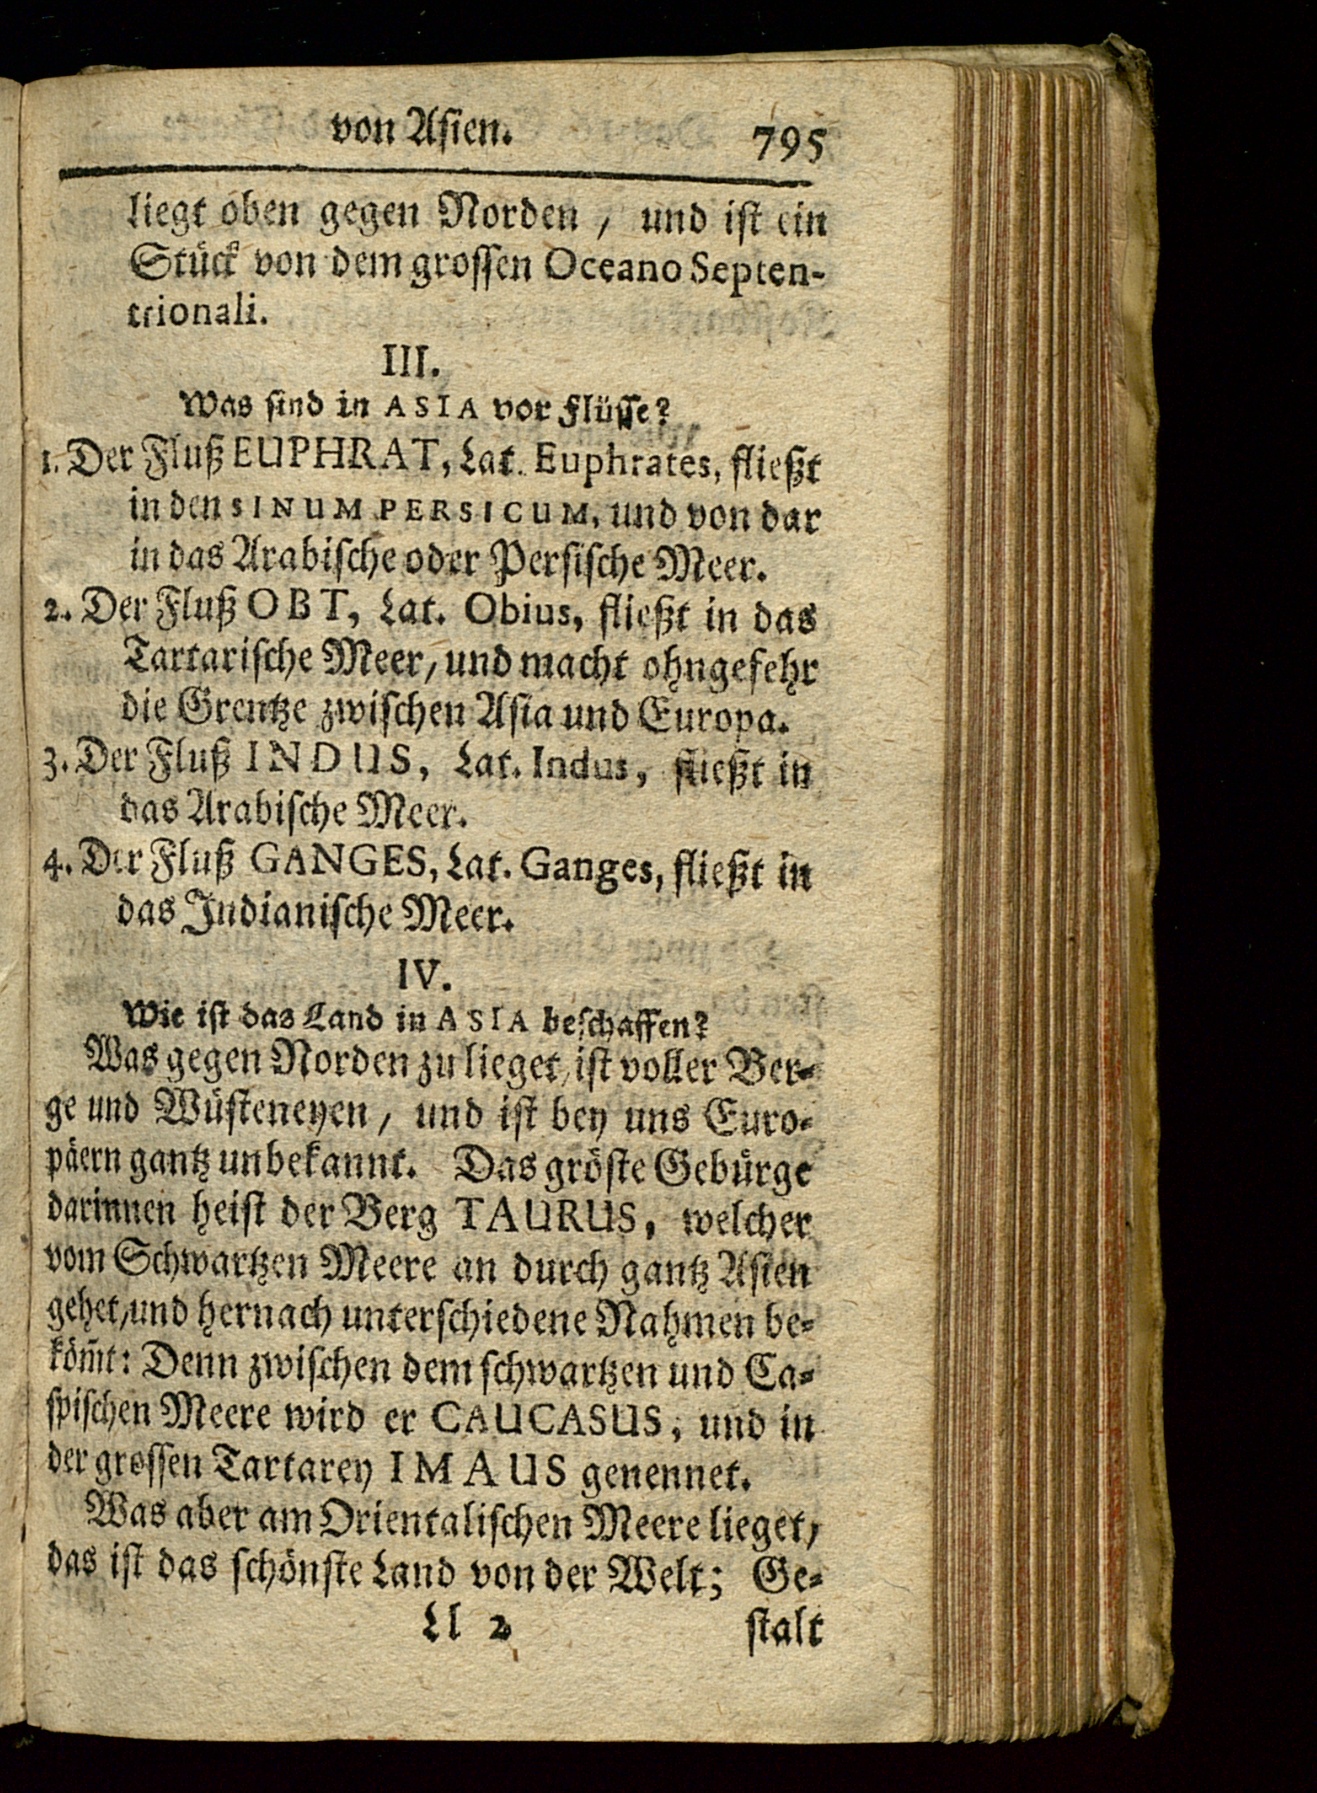 von Asien. 795
liegt oben gegen Norden / und ist ein
Stück von dem grossen Oceano Septen-
trionali.
III.
Was sind in ASIA vor Flüsse?
1. Der Fluß EUPHRAT, Lat. Euphrates, fließt
in den SINUM PERSICUM, und von dar
in das Arabische oder Persische Meer.
2. Der Fluß OBT, Lat. Obius, fließt in das
Tartarische Meer / und macht ohngefehr
die Grentze zwischen Asia und Europa.
3. Der Fluß INDUS, Lat. Indus, fließt in
das Arabische Meer.
4. Der Fluß GANGES, Lat. Ganges, fließt in
das Indianische Meer.
IV.
Wie ist das Land in ASIA beschaffen?
Was gegen Norden zu lieget / ist voller Ber-
ge und Wüsteneyen / und ist bey uns Euro-
päern gantz unbekannt. Das gröste Gebürge
darinnen heist der Berg TAURUS, welcher
vom Schwartzen Meere an durch gantz Asien
gehet / und hernach unterschiedene Nahmen be-
köm̃t: Denn zwischen dem schwartzen und Ca-
spischen Meere wird er CAUCASUS, und in
der grossen Tartarey IMAUS genennet.
Was aber am Orientalischen Meere lieget /
das ist das schönste Land von der Welt; Ge-
Ll 2 stalt